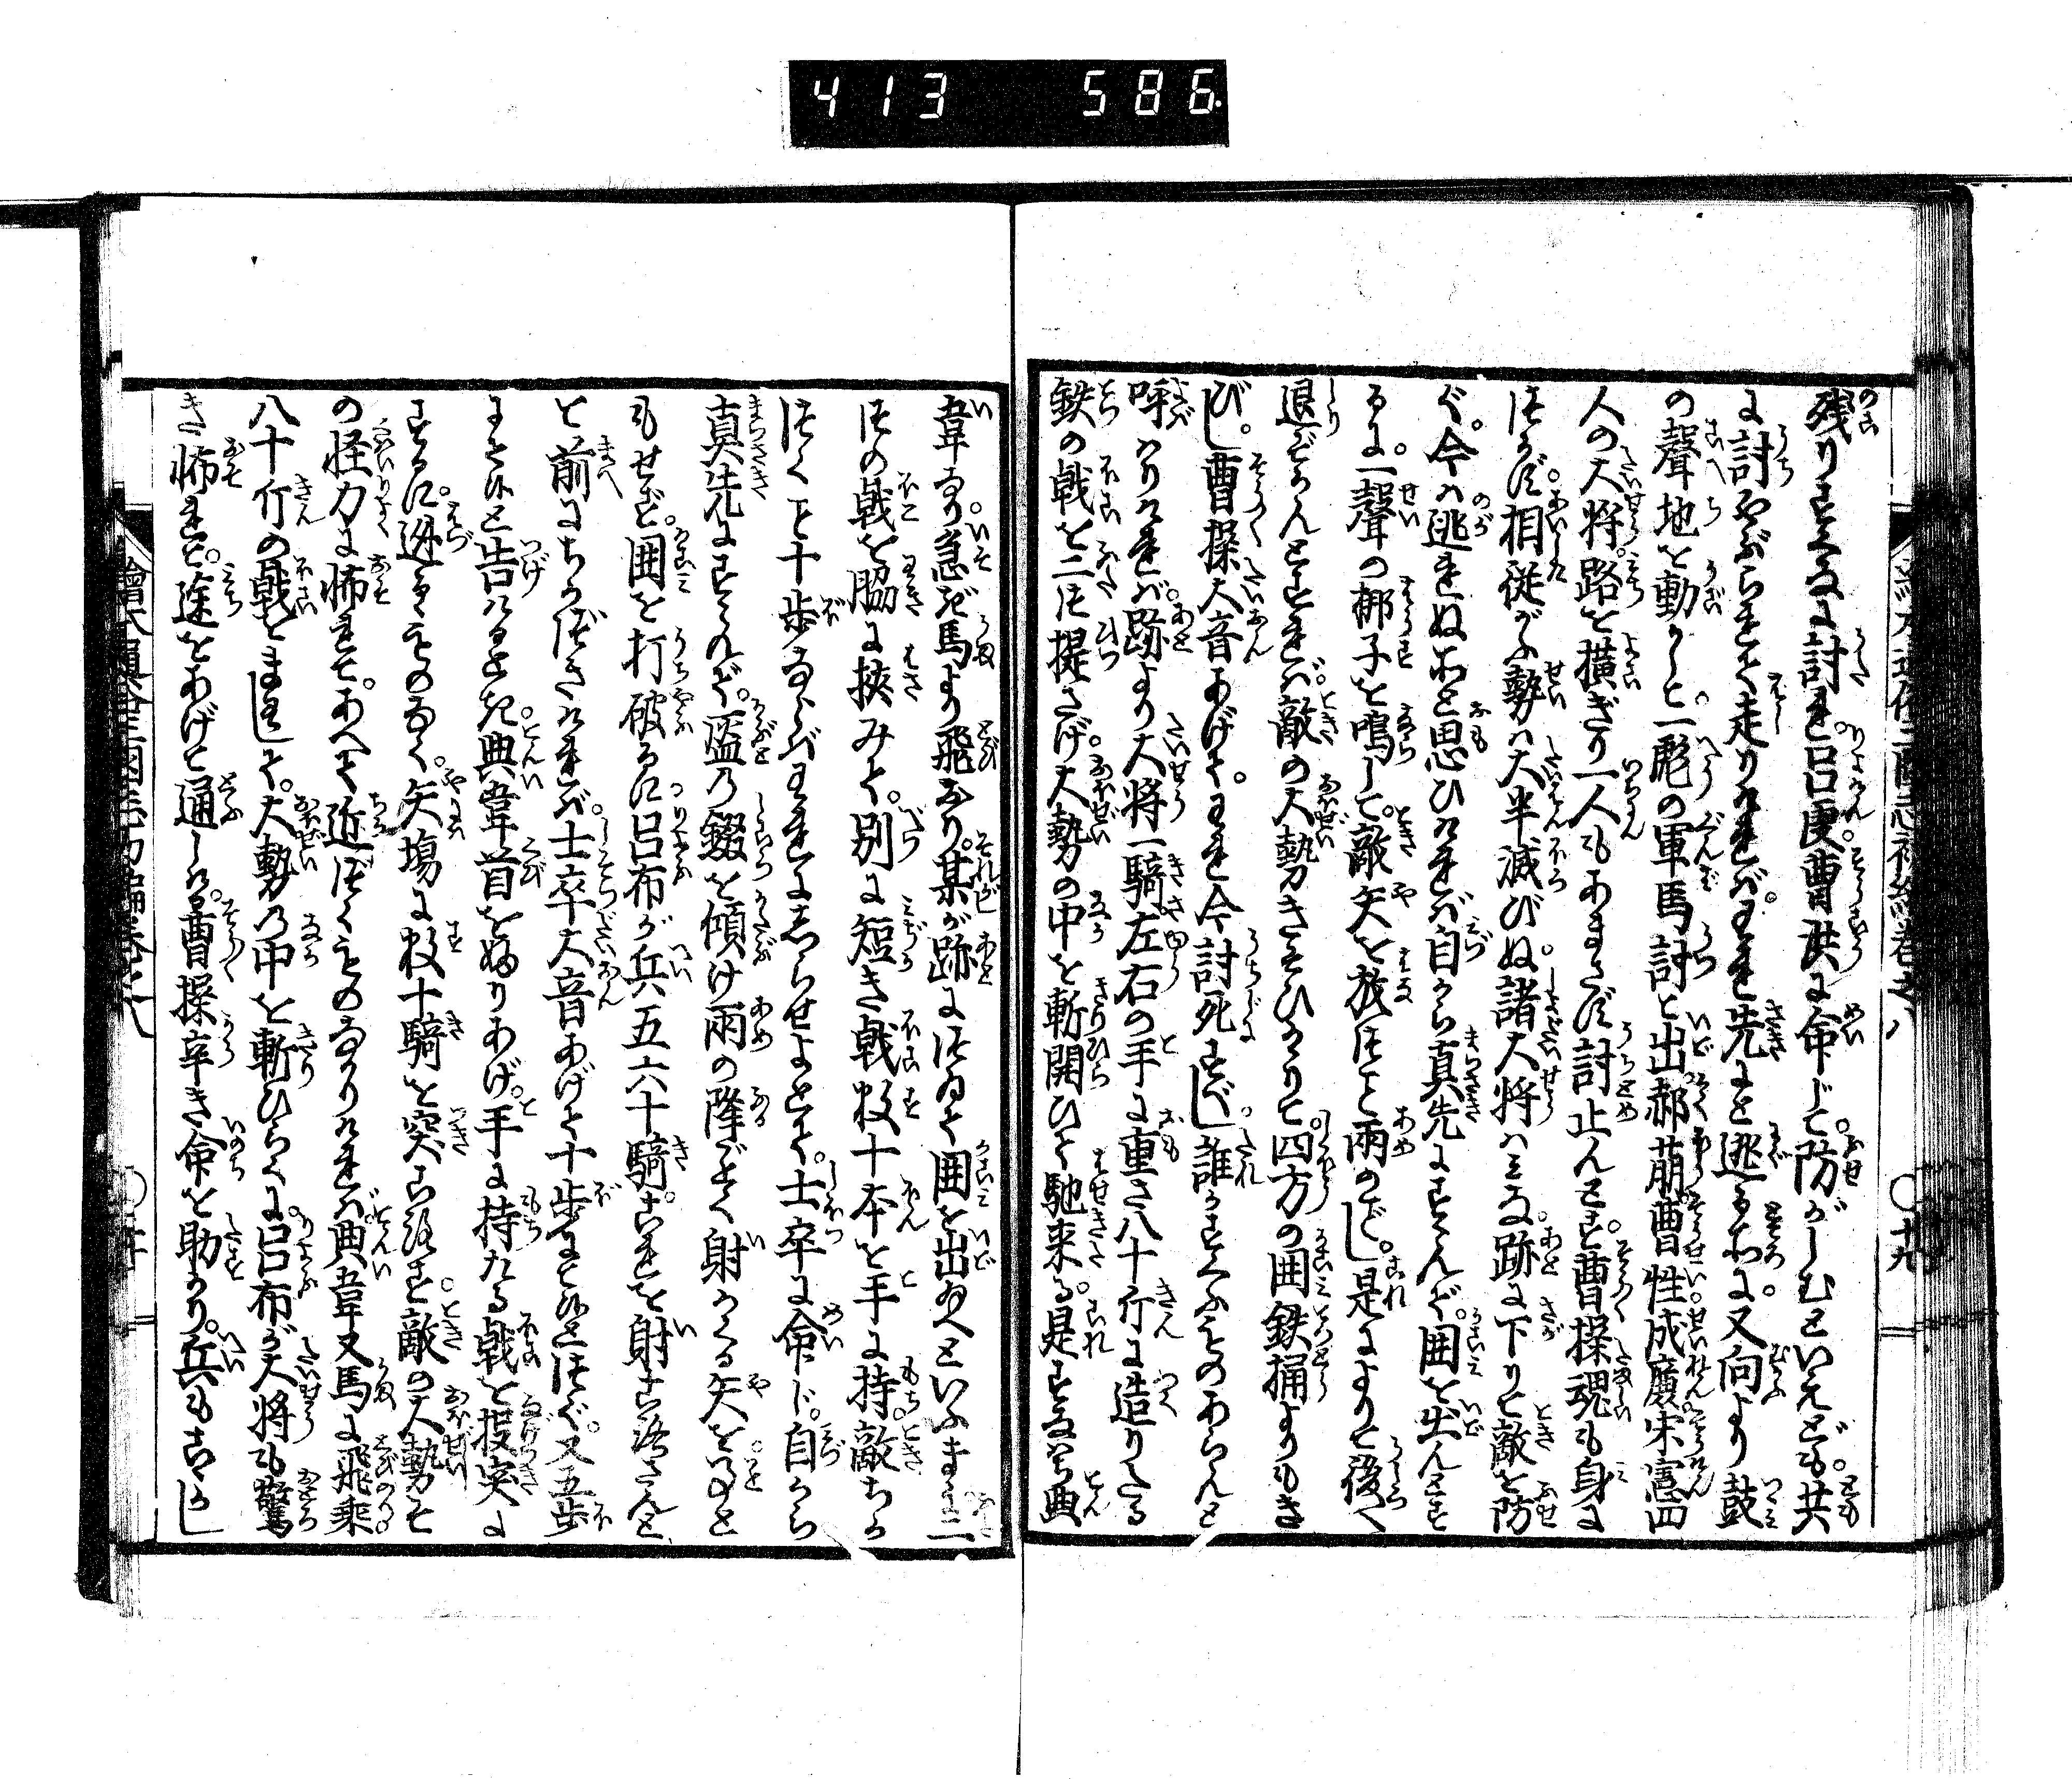 413 586
残りすくなに討れ。呂虔曹洪に命じて。防がしむといへども。共
に討やぶられて走りければ。われ先にと逃るゝ所に。又向より鼓
の聲地を動かして。一彪の軍馬討て出。郝萌曹性成廉宋憲四
人の大将。路を横ぎり一人もあまさず討止んとす。曹操魂も身に
つかず。相従がふ勢は大半滅びぬ。諸大将はみな。跡に下りて敵を防
ぐ。今は逃れぬ所と思ひければ。自から真先にすゝんで。囲を出んとす
るに。一聲の梆子を鳴して。敵矢を放つこと雨のごとし。是によりて後へ
退ぞかんとすれば。敵の大勢きそひかゝりて。四方の囲鉄桶よりもき
びし。曹操大音あげて。われ今討死すべし。誰かすくふものあらんと
呼はりければ。跡より大将一騎左右の手に重さ八十斤に造りたる
鉄の戟を二つ提さげ。大勢の中を斬開ひて馳来る。是すなはち典
韋なり。急ぎ馬より飛下り。某が跡につゐて囲を出給へといふまゝに。二
つの戟を脇に挟みて。別に短き戟数十本を手に持。敵ちか
づくこと十歩ならば。われにしらせよとて。士卒に命じ。自から
真先にすゝんで。盔の錣を傾け雨の降ごとく射かくる矢を。事と
もせず。囲を打破るに。呂布が兵五六十騎。これを射ころさんと
と前にちかづきければ。士卒大音あげて十歩にて候とつぐ。又五歩
にて候と告けるとき。典韋首をふりあげ。手に持たる戟を投突に
するに。迯るものなく。矢場に数十騎を突ころす。敵の大勢そ
の怪力に怖れて。あへて近づくものなかりければ。典韋又馬に飛乗。
八十斤の戟をまはして。大勢の中を斬ひらくに。呂布が大将も驚
き怖れて。途をあけて通しける。曹操辛き命を助かり。兵もすこし
繪本通俗三國志初編巻之八 ○十九
繪本通俗三國志初編巻之八 ○二十